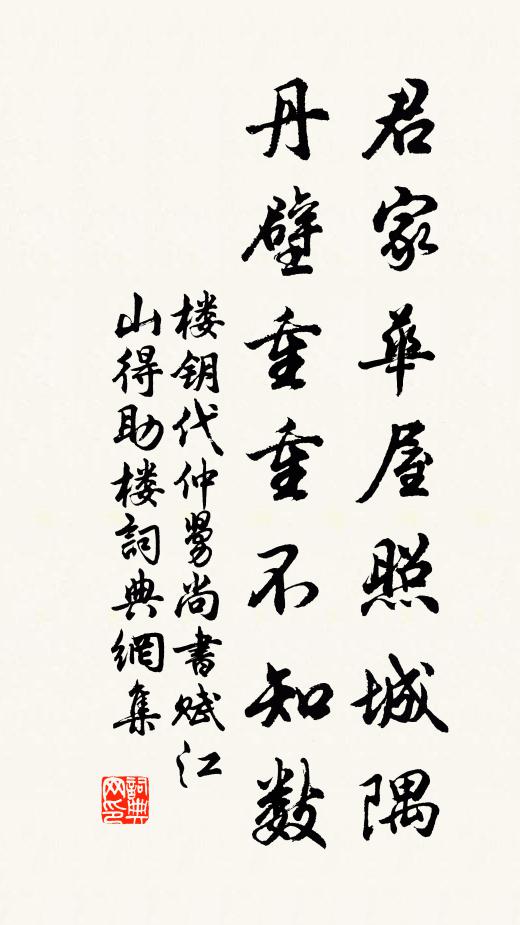 君家華屋照城隅
丹壁重重不知数
楼钥代仲舅尚書赋江
山得助楼詞典網集
詞典
网印